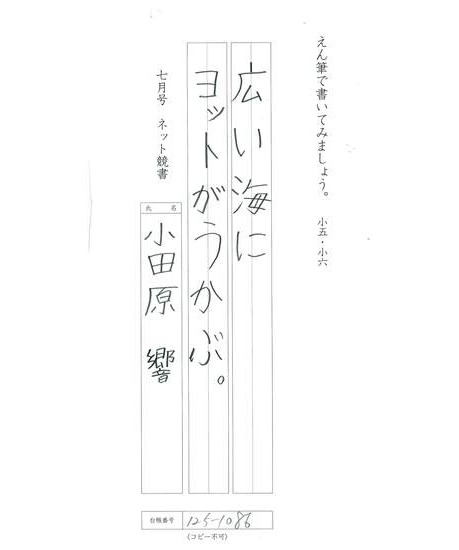 えん筆で書いてみましょう。 小五・小六
広い海に
ヨットがうかぶ。
七月号 ネット競書
氏名
小田原 響
台帳番号 125-1086
(コピー不可)